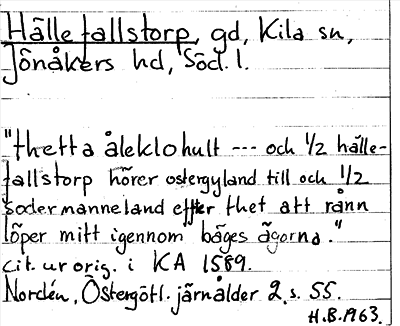 Hälle fallstorp, gd, Kila sn,
Jönåkers hd, Söd. l.
"thetta åleklohult --- och 1/2 hälle-
fallstorp hörer ostergyland till och 1/2
södermanneland effter thet att rånn
löper mitt igennom bäges ägorna."
cit. ur orig. i KA 1589.
Nordén, Östergötl. järnålder 2, s. 55.
H.B. 1963.